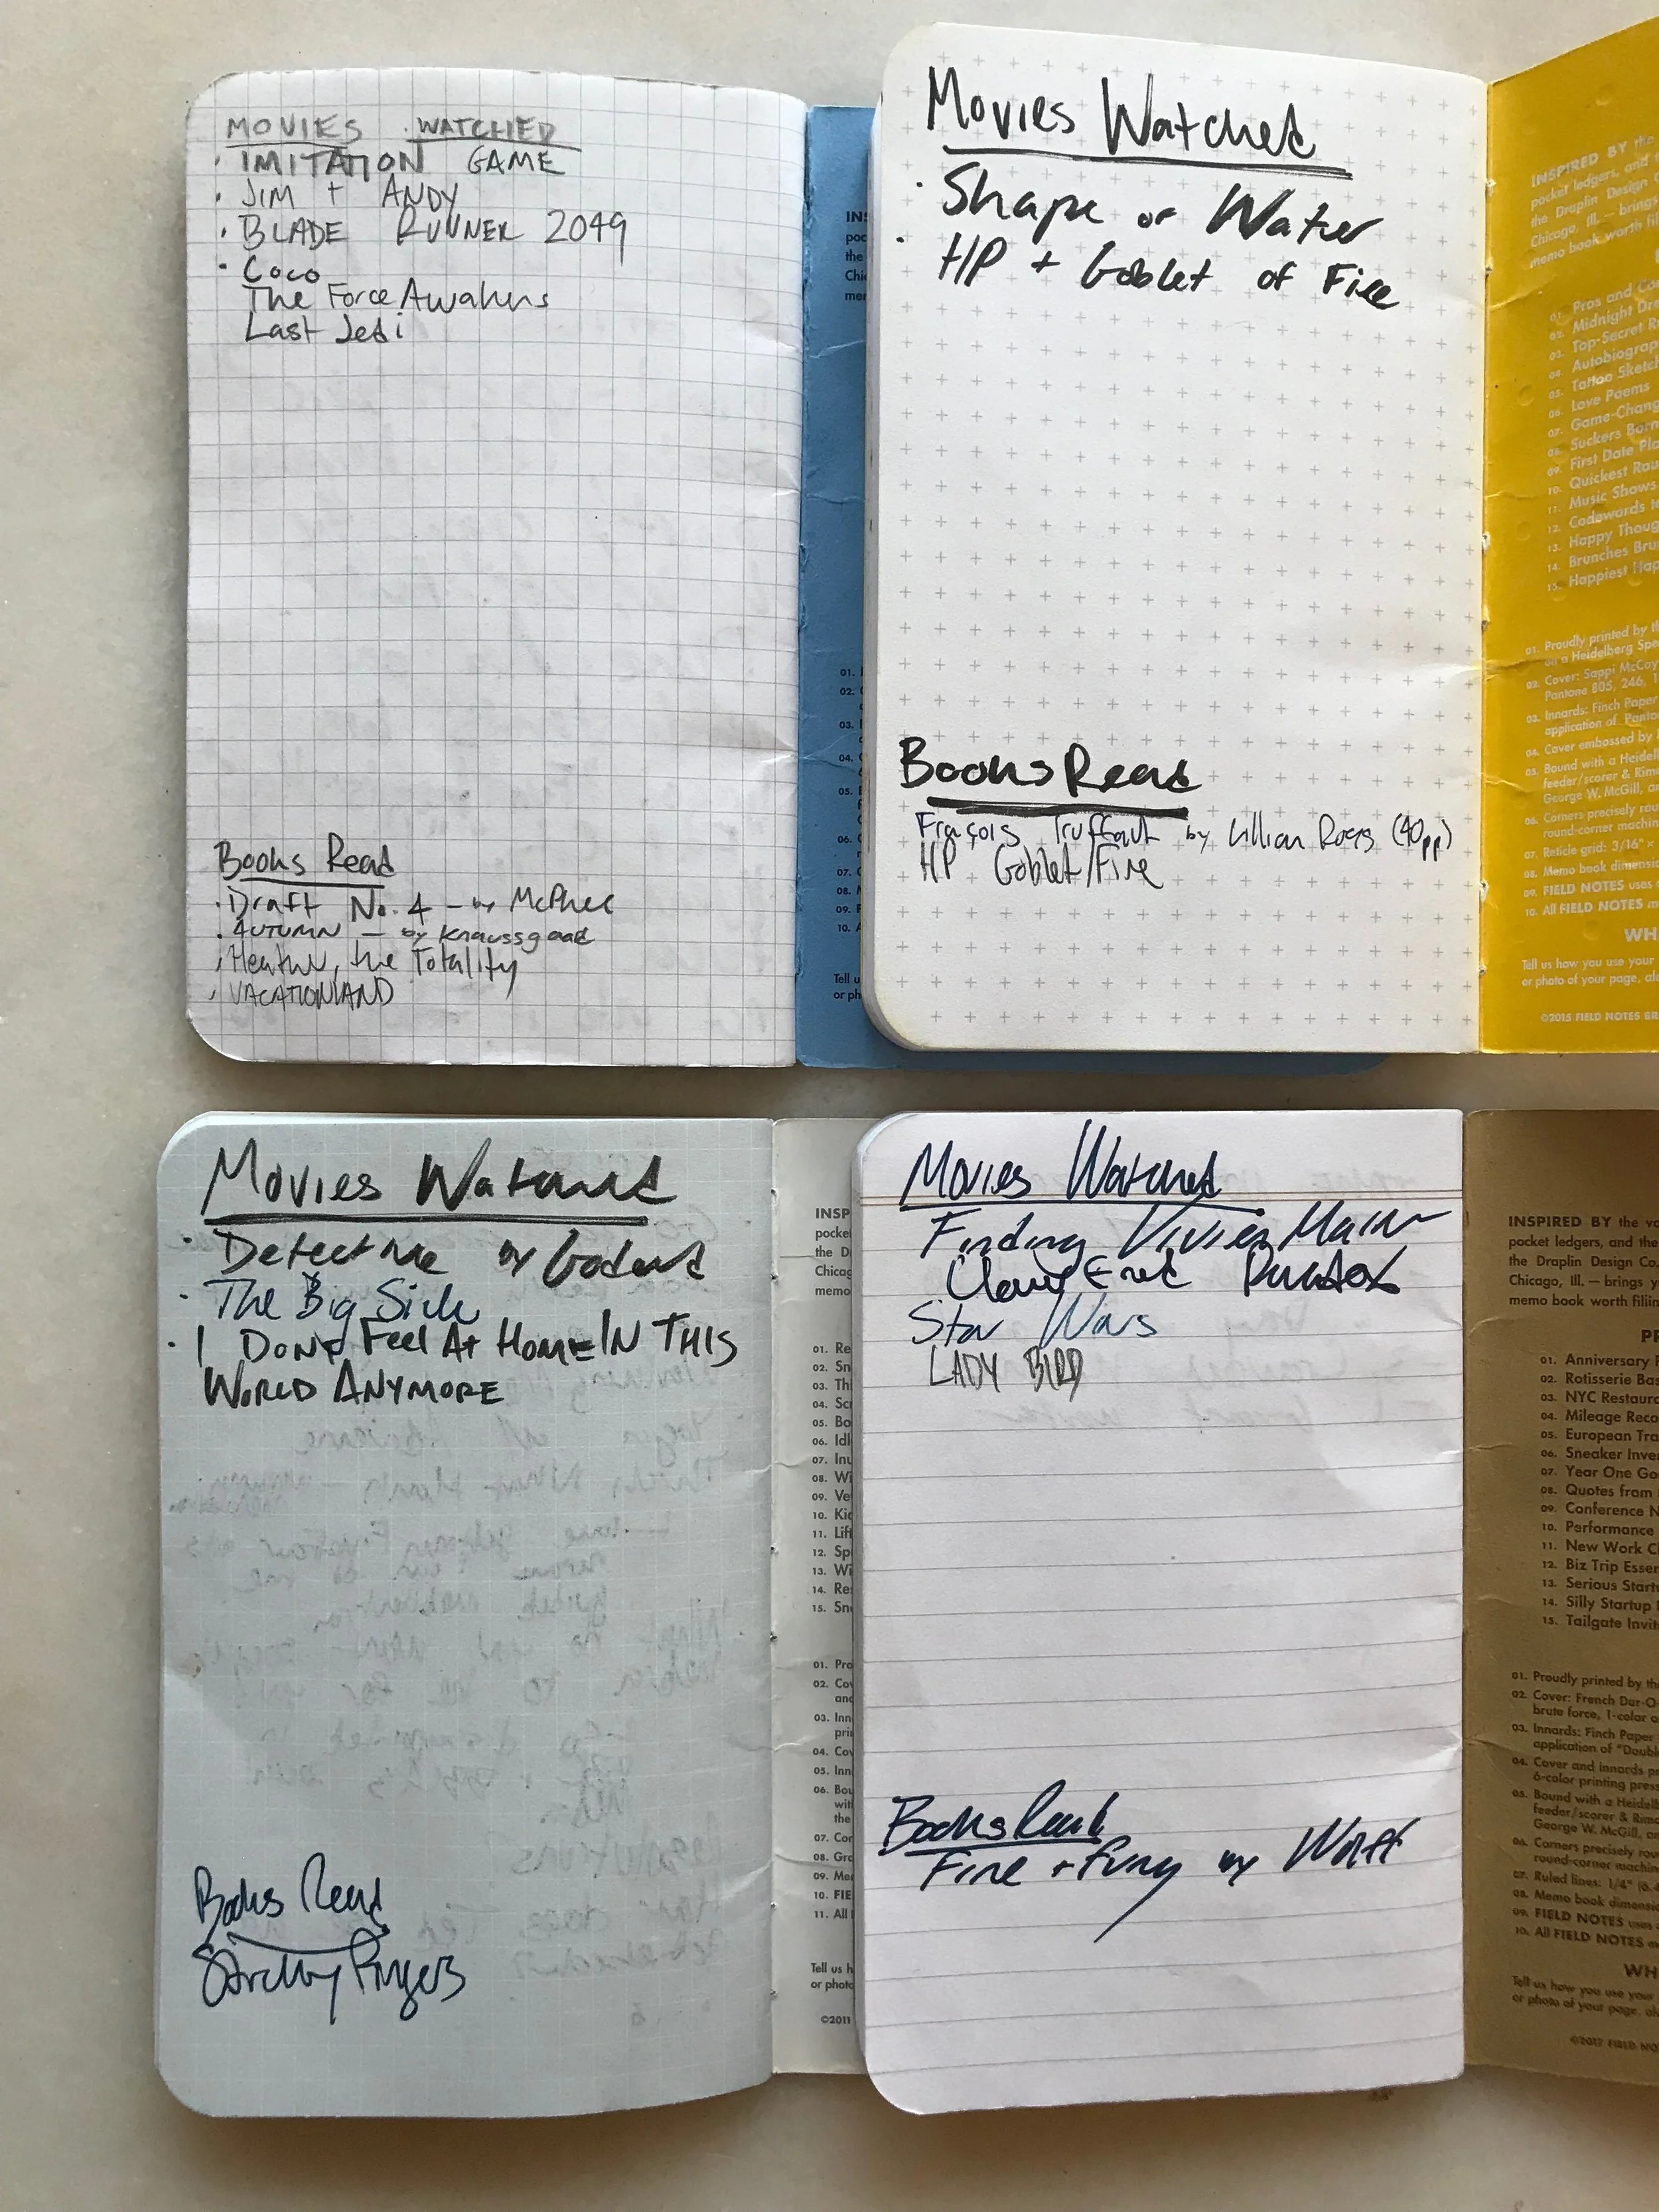 MOVIES WATCHED
· IMITATION GAME
· JIM + ANDY
· BLADE RUNNER 2049
· Coco
The Force Awakens
Last Jedi
Books Read
· Draft No. 4 – by McPhee
· AUTUMN – by Knaussgaad
· Heather, the Totality
· VACATIONLAND
IN
poc
the
Chi
me
01.
02.
03.
04.
05.
06.
07.
08.
09.
10.
Tell u
or ph
Movies Watched
· Shape of Water
· HP + Goblet of Fire
Books Read
François Truffaut by Lillian Ross (40pp)
HP Goblet/Fire
INSPIRED BY the
pocket ledgers, and
the Draplin Design
Chicago, Ill. — brings
memo book worth fil
01. Pros and Co
02. Midnight Dr
03. Top-Secret R
04. Autobiograp
05. Tattoo Sketc
06. Love Poems
07. Game-Chang
08. Suckers Born
09. First Date Pla
10. Quickest Rou
11. Music Shows
12. Codewords to
13. Happy Thoug
14. Brunches Bru
15. Happiest Hap
01. Proudly printed by th
on a Heidelberg Spe
02. Cover: Sappi McCoy
Pantone 805, 246, 1
03. Innards: Finch Paper
application of Panto
04. Cover embossed by
05. Bound with a Heidel
feeder/scorer & Rima
George W. McGill, an
06. Corners precisely rou
round-corner machin
07. Reticle grid: 3/16" ×
08. Memo book dimensio
09. FIELD NOTES uses
10. All FIELD NOTES m
WH
Tell us how you use your
or photo of your page, alo
©2015 FIELD NOTES BR
Movies Watched
· Detective by Godard
· The Big Sick
· I DONT Feel At Home IN THIS
WORLD ANYMORE
Books Read
INSP
pocke
the D
Chicag
memo
01. Re
02. Sn
03. Th
04. Sc
05. Bo
06. Idl
07. Inu
08. Wi
09. Ve
10. Kic
11. Lift
12. Sp
13. Wi
14. Re
15. Sn
01. Pro
02. Cov
and
03. Inn
pri
04. Cov
05. Inn
06. Bou
wit
the
07. Cor
08. Gra
09. Me
10. FIE
11. All
Tell us h
or photo
©2011
Movies Watched
Finding Vivien Maier
Paradox
Star Wars
LADY BIRD
Books Read
Fire + Fury by Wolff
INSPIRED BY the va
pocket ledgers, and the
the Draplin Design Co.
Chicago, Ill. — brings y
memo book worth fillin
PR
01. Anniversary
02. Rotisserie Bas
03. NYC Restaura
04. Mileage Reco
05. European Tra
06. Sneaker Inven
07. Year One Go
08. Quotes from
09. Conference N
10. Performance
11. New Work Cl
12. Biz Trip Essen
13. Serious Startu
14. Silly Startup
15. Tailgate Invit
01. Proudly printed by the
02. Cover: French Dur-O
brute force, 1-color o
03. Innards: Finch Paper
application of "Doubl
04. Cover and innards p
6-color printing press
05. Bound with a Heidelb
feeder/scorer & Rima
George W. McGill, an
06. Corners precisely rou
round-corner machin
07. Ruled lines: 1/4" (6.4
08. Memo book dimensio
09. FIELD NOTES uses
10. All FIELD NOTES
WH
Tell us how you use your
or photo of your page, al
©2017 FIELD NO